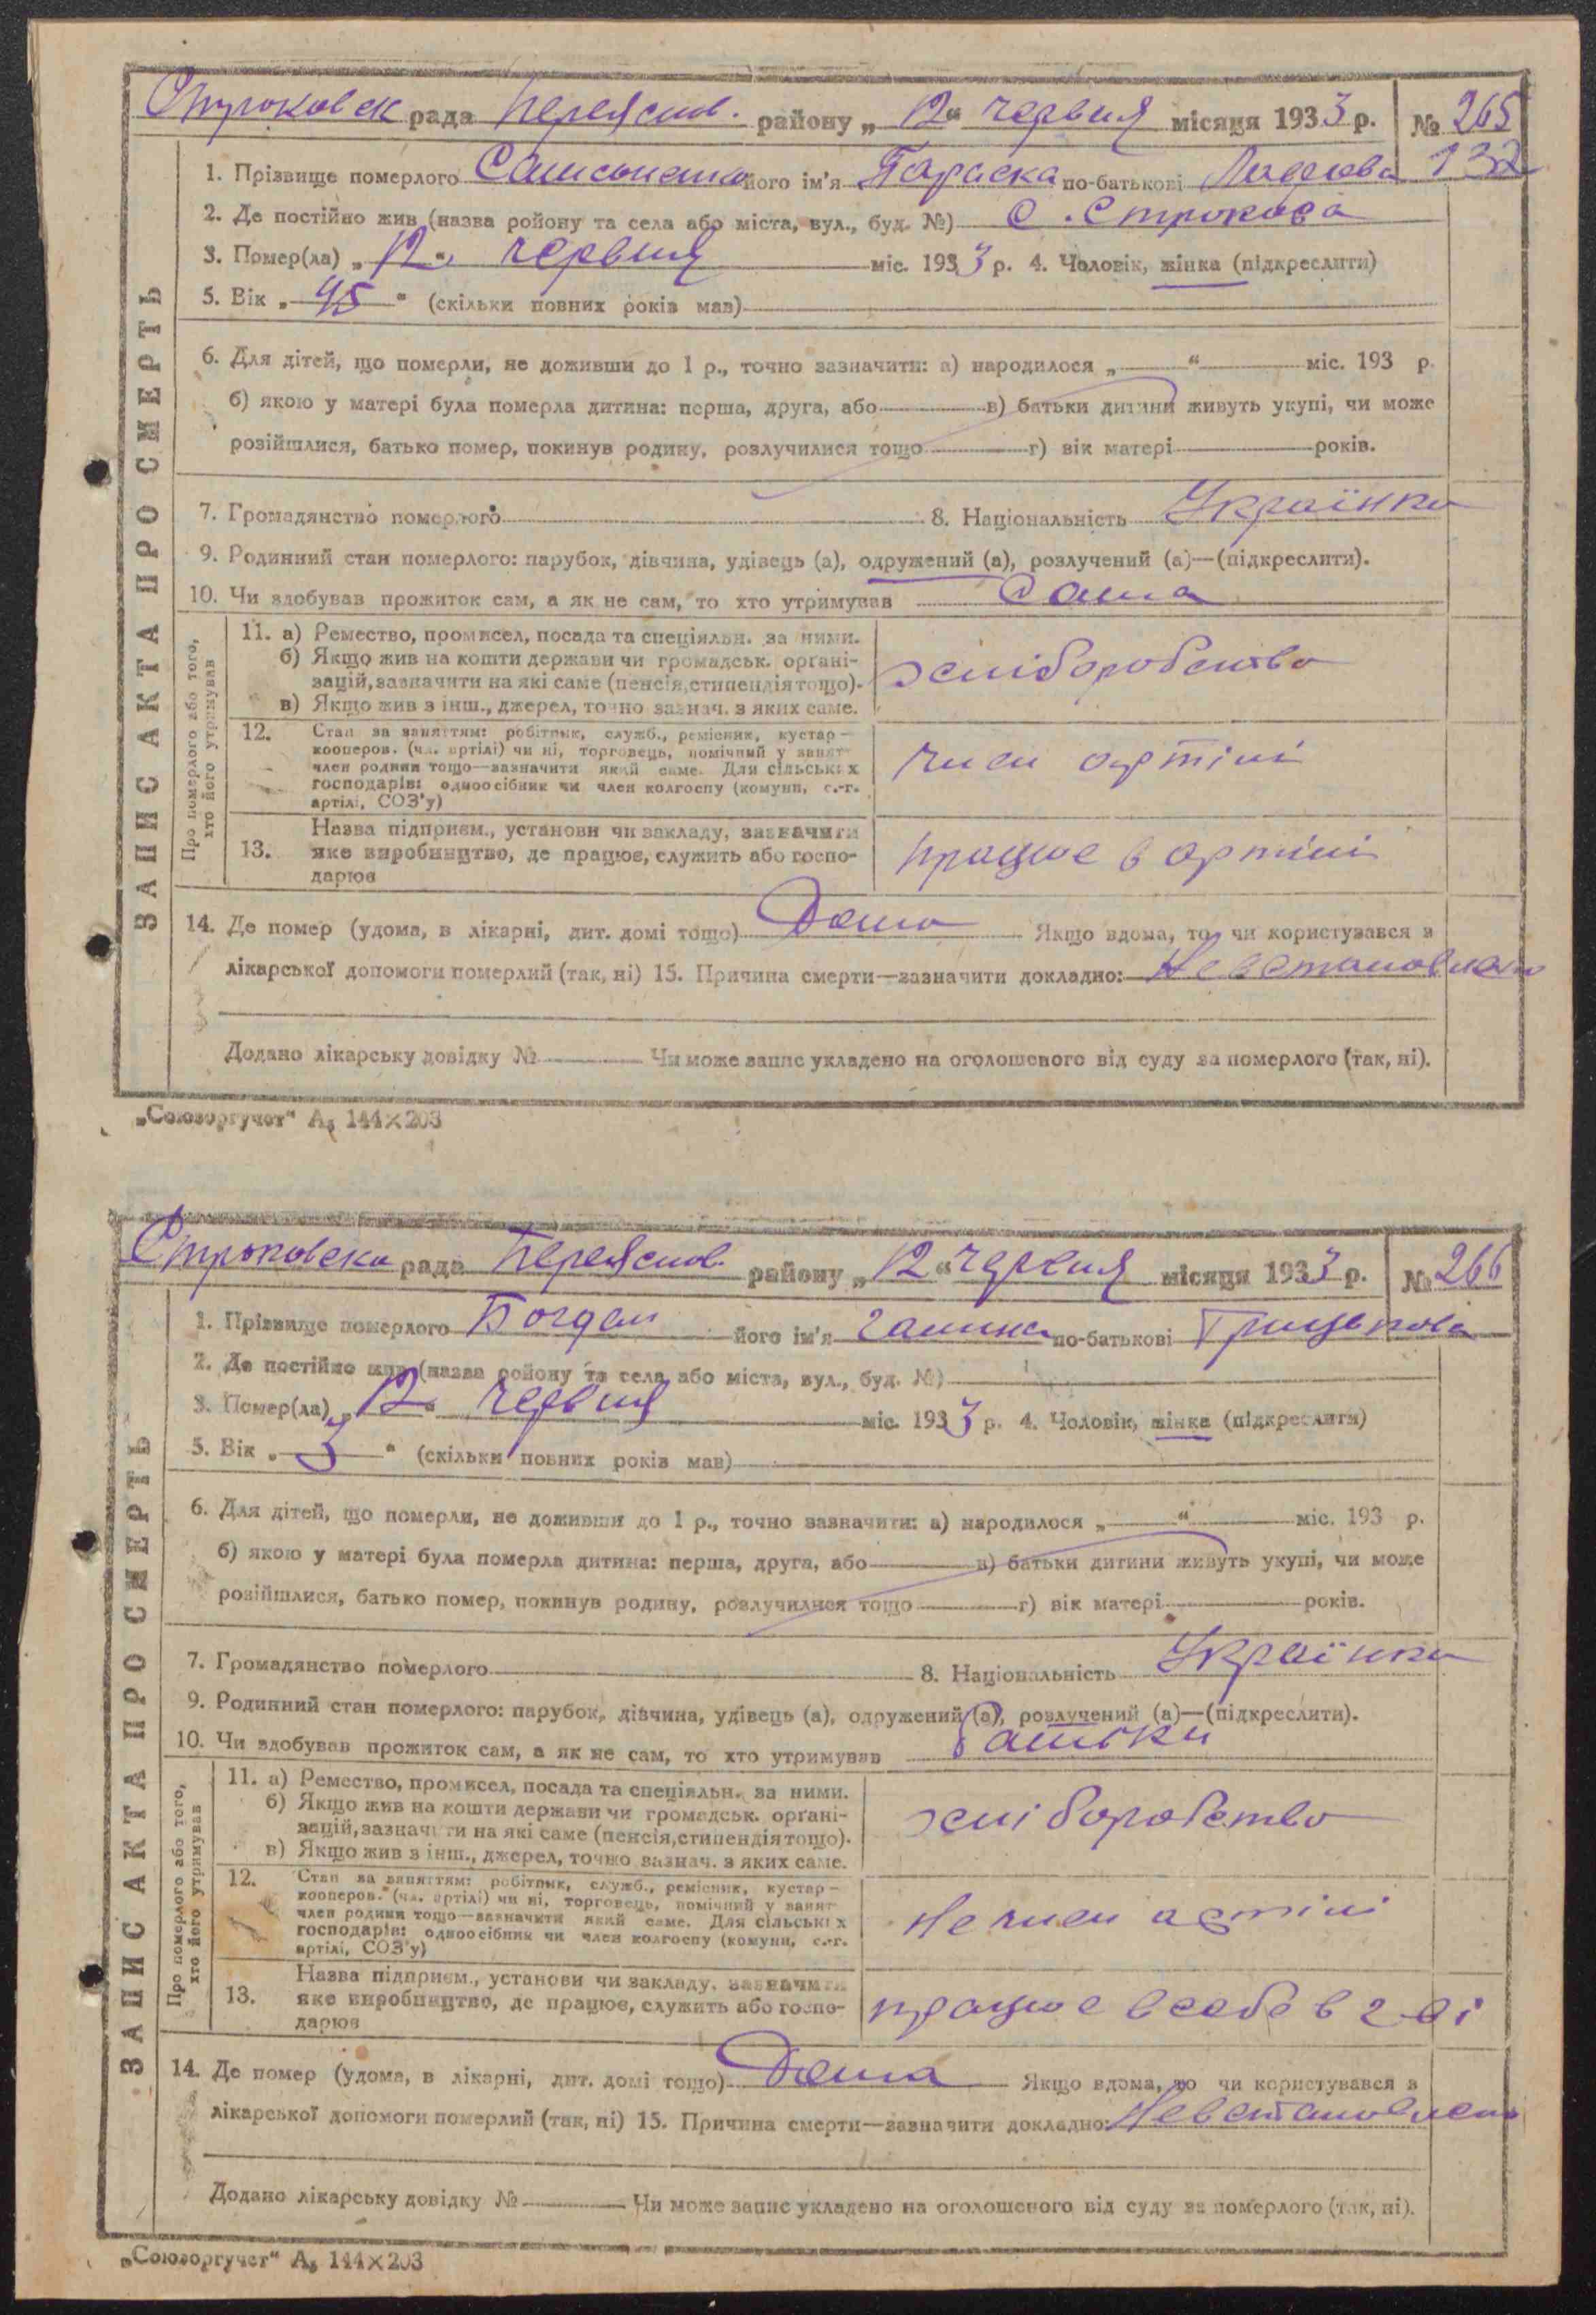 Строковск рада Переяслов. району „ 12 “ червня місяця 1933 р. № 265
132
1. Прізвище померлого Самсоненко його ім'я Параска по-батькові
2. Де постійно жив (назва ройону та села або міста, вул., буд. №) С. Строкова
3. Помер(ла) „ 12 “ червня міс. 1933 р. 4. Чоловік, жінка (підкреслити)
5. Вік „ 45 “ (скільки повних років мав)
6. Для дітей, що померли, не доживши до 1 р., точно зазначити: а) народилося „ “ міс. 193 р.
б) якою у матері була померла дитина: перша, друга, або в) батьки дитини живуть укупі, чи може
розійшлися, батько помер, покинув родину, розлучилися тощо г) вік матері років.
7. Громадянство померлого 8. Національність Українка
9. Родинний стан померлого: парубок, дівчина, удівець (а), одружений (а), розлучений (а)—(підкреслити).
10. Чи здобував прожиток сам, а як не сам, то хто утримував Сама
ЗАПИС АКТА ПРО СМЕРТЬ
Про померлого або того, хто його утримував
11. а) Ремество, промисел, посада та спеціяльн. за ними.
б) Якщо жив на кошти держави чи громадськ. орґані-
зацій, зазначити на які саме (пенсія, стипендія тощо).
в) Якщо жив з інш., джерел, точно зазнач. з яких саме.
хліборобство
12. Стан за заняттям: робітник, служб., ремісник, кустар—
кооперов. (чл. артілі) чи ні, торговець, помічний у занят-
член родини тощо—зазначити який саме. Для сільських
господарів: одноосібник чи член колгоспу (комуни, с.-г.
артілі, СОЗ'у)
член артілі
13. Назва підприєм., установи чи закладу, зазначити
яке виробництво, де працює, служить або госпо-
дарює
працює в артілі
14. Де помер (удома, в лікарні, дит. домі тощо) Дома Якщо вдома, то чи користувався з
лікарської допомоги померлий (так, ні) 15. Причина смерти—зазначити докладно: Невстановлено
Додано лікарську довідку № Чи може запис укладено на оголошеного від суду за померлого (так, ні).
„Союзоргучет“ А₅ 144×203
Строковска рада Переяслов. району „ 12 “ червня місяця 1933 р. № 266
1. Прізвище померлого Богдан його ім'я Галина по-батькові Грицькова
2. Де постійно жив (назва ройону та села або міста, вул., буд. №)
3. Помер(ла) „ 12 “ червня міс. 1933 р. 4. Чоловік, жінка (підкреслити)
5. Вік „ 3 “ (скільки повних років мав)
6. Для дітей, що померли, не доживши до 1 р., точно зазначити: а) народилося „ “ міс. 193 р.
б) якою у матері була померла дитина: перша, друга, або в) батьки дитини живуть укупі, чи може
розійшлися, батько помер, покинув родину, розлучилися тощо г) вік матері років.
7. Громадянство померлого 8. Національність Українка
9. Родинний стан померлого: парубок, дівчина, удівець (а), одружений (а), розлучений (а)—(підкреслити).
10. Чи здобував прожиток сам, а як не сам, то хто утримував батьки
ЗАПИС АКТА ПРО СМЕРТЬ
Про померлого або того, хто його утримував
11. а) Ремество, промисел, посада та спеціяльн. за ними.
б) Якщо жив на кошти держави чи громадськ. орґані-
зацій, зазначити на які саме (пенсія, стипендія тощо).
в) Якщо жив з інш., джерел, точно зазнач. з яких саме.
хліборобство
12. Стан за заняттям: робітник, служб., ремісник, кустар—
кооперов. (чл. артілі) чи ні, торговець, помічний у занят-
член родини тощо—зазначити який саме. Для сільських
господарів: одноосібник чи член колгоспу (комуни, с.-г.
артілі, СОЗ'у)
не член артілі
13. Назва підприєм., установи чи закладу, зазначити
яке виробництво, де працює, служить або госпо-
дарює
працює в себе в г-ві
14. Де помер (удома, в лікарні, дит. домі тощо) Дома Якщо вдома, то чи користувався з
лікарської допомоги померлий (так, ні) 15. Причина смерти—зазначити докладно: Невстановлено
Додано лікарську довідку № Чи може запис укладено на оголошеного від суду за померлого (так, ні).
„Союзоргучет“ А₅ 144×203